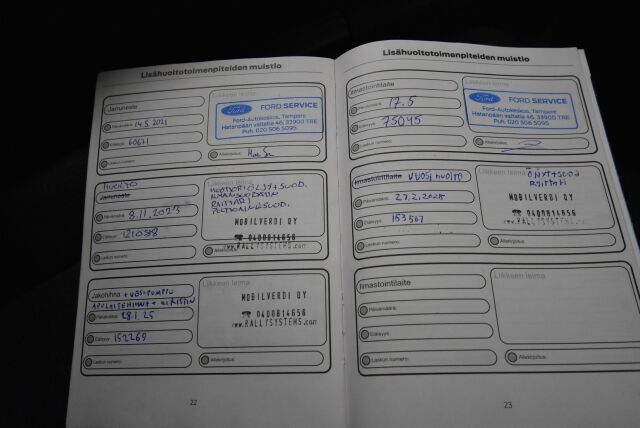 Lisähuoltotoimenpiteiden muistio
Jarruneste
Päivämäärä: 14.5.2021
Etäisyys: 60671
Laskun numero:
Liikkeen leima
Ford FORD SERVICE
Ford-Autokeskus, Tampere
Hatanpään valtatie 46, 33900 TRE
Puh. 020 506 5095
Allekirjoitus:
HUOLTO
Jarruneste
Päivämäärä: 8.11.2023
Etäisyys: 121088
Laskun numero:
Liikkeen leima
MOOTTORIÖLJYT+SUOD.
ILMANSUODATIN
RAITTARI
POLTTOAINESUOD.
MOBILVERDI OY
☎ 0400814656
www.RALLYSYSTEMS.com
Allekirjoitus:
Jakohihna + VESIPUMPPU
APULAITEHIHNA + KIRISTIN
Päivämäärä: 28.1.25
Etäisyys: 152269
Laskun numero:
Liikkeen leima
MOBILVERDI OY
☎ 0400814656
www.RALLYSYSTEMS.com
Allekirjoitus:
22
Lisähuoltotoimenpiteiden muistio
Ilmastointilaite
Päivämäärä: 17.5
Etäisyys: 75045
Laskun numero:
Liikkeen leima
Ford FORD SERVICE
Ford-Autokeskus, Tampere
Hatanpään valtatie 46, 33900 TRE
Puh. 020 506 5095
Allekirjoitus:
Ilmastointilaite VUOSIHUOLTO
Päivämäärä: 27.2.2025
Etäisyys: 153567
Laskun numero:
Liikkeen leima
ÖLJYT+SUOD
RAITTARI
MOBILVERDI OY
☎ 0400814656
www.RALLYSYSTEMS.com
Allekirjoitus:
Ilmastointilaite
Päivämäärä:
Etäisyys:
Laskun numero:
Liikkeen leima
Allekirjoitus:
23